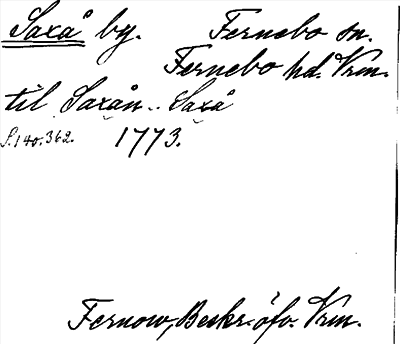 Saxå by. Fernebo sn.
Fernebo hd. Vrm.
til Saxån.. Saxå
S. 140. 362. 1773.
Fernow, Beskr. öfv. Vrm.